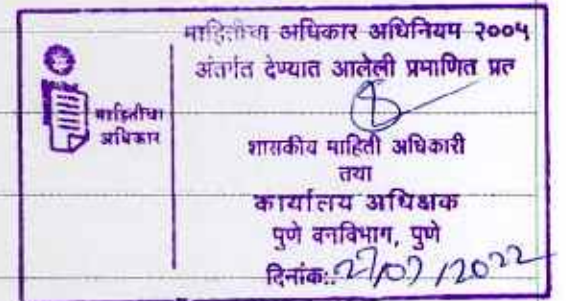 माहितीचा अधिकार
माहितीचा अधिकार अधिनियम २००५
अंतर्गत देण्यात आलेली प्रमाणित प्रत
शासकीय माहिती अधिकारी
तथा
कार्यालय अधिक्षक
पुणे वनविभाग, पुणे
दिनांक: